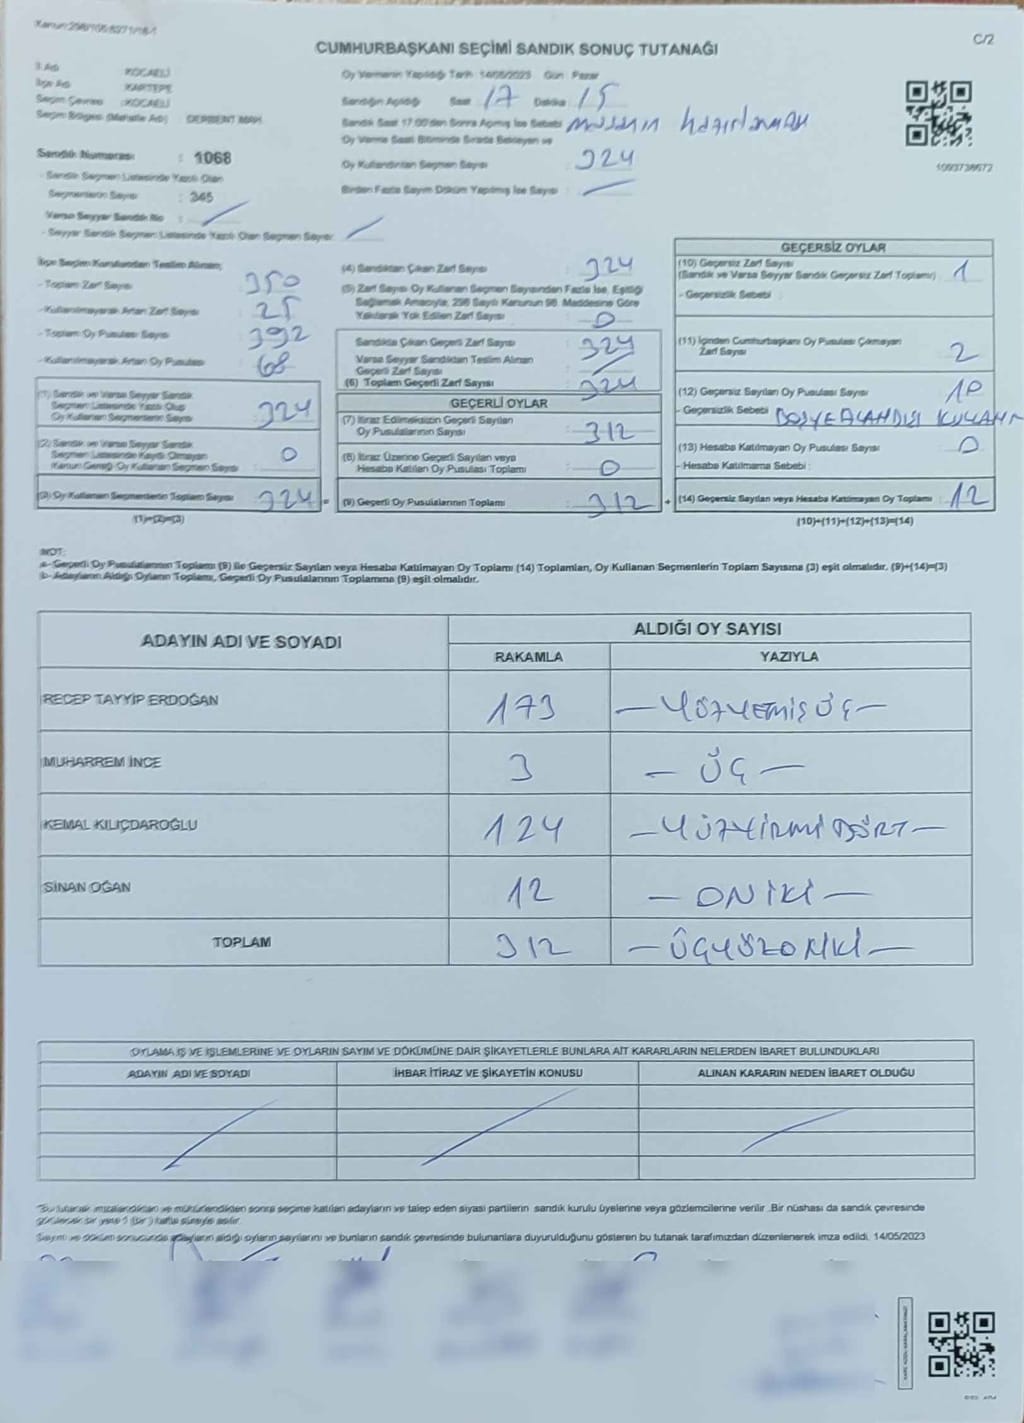 Kanun:298/105:6271/18-1
C/2
CUMHURBAŞKANI SEÇİMİ SANDIK SONUÇ TUTANAĞI
İl Adı KOCAELİ
İlçe Adı KARTEPE
Seçim Çevresi :KOCAELİ
Seçim Bölgesi (Mahalle Adı) DERBENT MAH.
Oy Vermenin Yapıldığı Tarih 14/05/2023 Gün: Pazar
Sandığın Açıldığı Saat 17 Dakika 15
Sandık Saat 17:00'den Sonra Açılmış İse Sebebi
Oy Verme Saati Bitiminde Sırada Bekleyen ve
Oy Kullandırılan Seçmen Sayısı : 324
Birden Fazla Sayım Döküm Yapılmış İse Sayısı :
1093738672
Sandık Numarası : 1068
- Sandık Seçmen Listesinde Yazılı Olan
Seçmenlerin Sayısı : 345
Varsa Seyyar Sandık No :
- Seyyar Sandık Seçmen Listesinde Yazılı Olan Seçmen Sayısı
İlçe Seçim Kurulundan Teslim Alınan;
- Toplam Zarf Sayısı 350
- Kullanılmayarak Artan Zarf Sayısı 25
- Toplam Oy Pusulası Sayısı 392
- Kullanılmayarak Artan Oy Pusulası 68
(1) Sandık ve Varsa Seyyar Sandık
Seçmen Listesinde Yazılı Olup
Oy Kullanan Seçmenlerin Sayısı 324
(2) Sandık ve Varsa Seyyar Sandık
Seçmen Listesinde Kaydı Olmayan
Kanun Gereği Oy Kullanan Seçmen Sayısı 0
(3) Oy Kullanan Seçmenlerin Toplam Sayısı 324 =
(1)+(2)=(3)
(4) Sandıktan Çıkan Zarf Sayısı : 324
(5) Zarf Sayısı Oy Kullanan Seçmen Sayısından Fazla İse, Eşitliği
Sağlamak Amacıyla, 298 Sayılı Kanunun 98. Maddesine Göre
Yakılarak Yok Edilen Zarf Sayısı : 0
Sandıkta Çıkan Geçerli Zarf Sayısı : 324
Varsa Seyyar Sandıktan Teslim Alınan
Geçerli Zarf Sayısı :
(6) Toplam Geçerli Zarf Sayısı : 324
GEÇERLİ OYLAR
(7) İtiraz Edilmeksizin Geçerli Sayılan
Oy Pusulalarının Sayısı : 312
(8) İtiraz Üzerine Geçerli Sayılan veya
Hesaba Katılan Oy Pusulası Toplamı : 0
(9) Geçerli Oy Pusulalarının Toplamı : 312 +
GEÇERSİZ OYLAR
(10) Geçersiz Zarf Sayısı
(Sandık ve Varsa Seyyar Sandık Geçersiz Zarf Toplamı) : 1
- Geçersizlik Sebebi :
(11) İçinden Cumhurbaşkanı Oy Pusulası Çıkmayan
Zarf Sayısı : 2
(12) Geçersiz Sayılan Oy Pusulası Sayısı :
- Geçersizlik Sebebi
(13) Hesaba Katılmayan Oy Pusulası Sayısı : 0
- Hesaba Katılmama Sebebi :
(14) Geçersiz Sayılan veya Hesaba Katılmayan Oy Toplamı : 12
(10)+(11)+(12)+(13)=(14)
NOT:
a- Geçerli Oy Pusulalarının Toplamı (9) ile Geçersiz Sayılan veya Hesaba Katılmayan Oy Toplamı (14) Toplamları, Oy Kullanan Seçmenlerin Toplam Sayısına (3) eşit olmalıdır. (9)+(14)=(3)
b- Adayların Aldığı Oyların Toplamı, Geçerli Oy Pusulalarının Toplamına (9) eşit olmalıdır.
ADAYIN ADI VE SOYADI ALDIĞI OY SAYISI
RAKAMLA YAZIYLA
RECEP TAYYİP ERDOĞAN 173 — YÜZYEMİŞ ÜÇ —
MUHARREM İNCE 3 — ÜÇ —
KEMAL KILIÇDAROĞLU 124 — YÜZYİRMİ DÖRT —
SİNAN OĞAN 12 — ONİKİ —
TOPLAM 312 — ÜÇYÜZONİKİ —
OYLAMA İŞ VE İŞLEMLERİNE VE OYLARIN SAYIM VE DÖKÜMÜNE DAİR ŞİKAYETLERLE BUNLARA AİT KARARLARIN NELERDEN İBARET BULUNDUKLARI
ADAYIN ADI VE SOYADI İHBAR İTİRAZ VE ŞİKAYETİN KONUSU ALINAN KARARIN NEDEN İBARET OLDUĞU
"Bu tutanak imzalandıktan ve mühürlendikten sonra seçime katılan adayların ve talep eden siyasi partilerin sandık kurulu üyelerine veya gözlemcilerine verilir. Bir nüshası da sandık çevresinde
görülecek bir yere 1 (bir) hafta süreyle asılır.
Sayım ve döküm sonucunda adayların aldığı oyların sayılarını ve bunların sandık çevresinde bulunanlara duyurulduğunu gösteren bu tutanak tarafımızdan düzenlenerek imza edildi. 14/05/2023